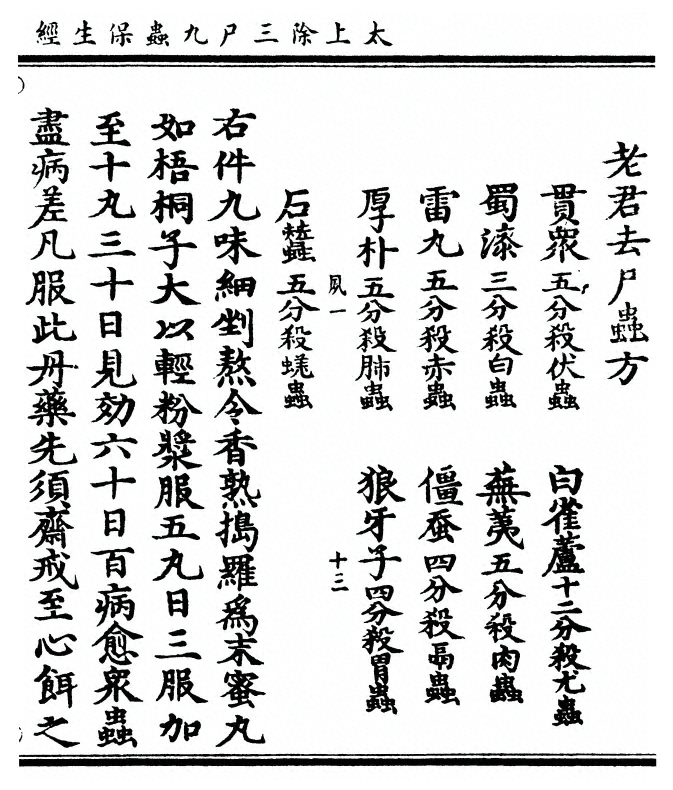 太上除三尸九蟲保生經
老君去尸蟲方
貫衆五分殺伏蟲 白雀蘆十二分殺尤蟲
蜀漆三分殺白蟲 蕪荑五分殺肉蟲
雷丸五分殺赤蟲 僵蚕四分殺鬲蟲
厚朴五分殺肺蟲 狼牙子四分殺胃蟲
夙一 十三
石蠶五分殺蜣蟲
右件九味細剉熬令香熟搗羅爲末蜜丸
如梧桐子大以輕粉漿服五丸日三服加
至十丸三十日見効六十日百病愈衆蟲
盡病差凡服此丹藥先須齋戒至心餌之